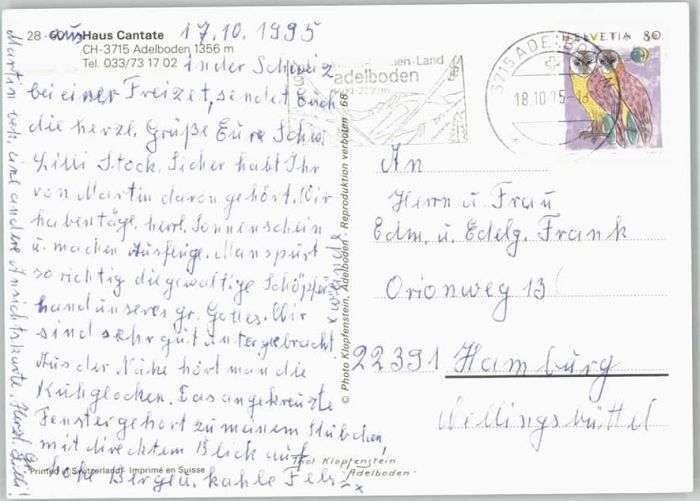 28 - 60 aus Haus Cantate 17.10.1995
CH-3715 Adelboden 1356 m
Tel. 033/73 17 02 in der Schweiz
bei einer Freizet, sendet Euch
die herzl. Grüße Eure Schw.
Lilli Stock. Sicher habt Ihr
von Martin davon gehört. Wir
haben tägl. herrl. Sonnenschein
u. machen Ausflüge. Man spürt
so richtig die gewaltige Schöpfer
hand unseres gr. Gottes. Wir
sind sehr gut untergebracht
Aus der Nähe hört man die
Kuhglocken. Das angekreuzte
Fenster gehört zu meinem Stübchen
mit direktem Blick auf
hohe Bergeu. kahle Fels-
Martin bek. eine andere Ansichtskarte. Herzl. Gr. Lilli!
wände
Printed in Switzerland - Imprimé en Suisse
© Photo Klopfenstein, Adelboden - Reproduktion verboten 68
Thol Klopfenstein
Adelboden
-Land
adelboden
3715 ADELBODEN
18.10.95
HELVETIA 80
An
Herrn u Frau
Edm. u. Edelg. Frank
Orionweg 13
22391 Hamburg
Wellingsbüttel